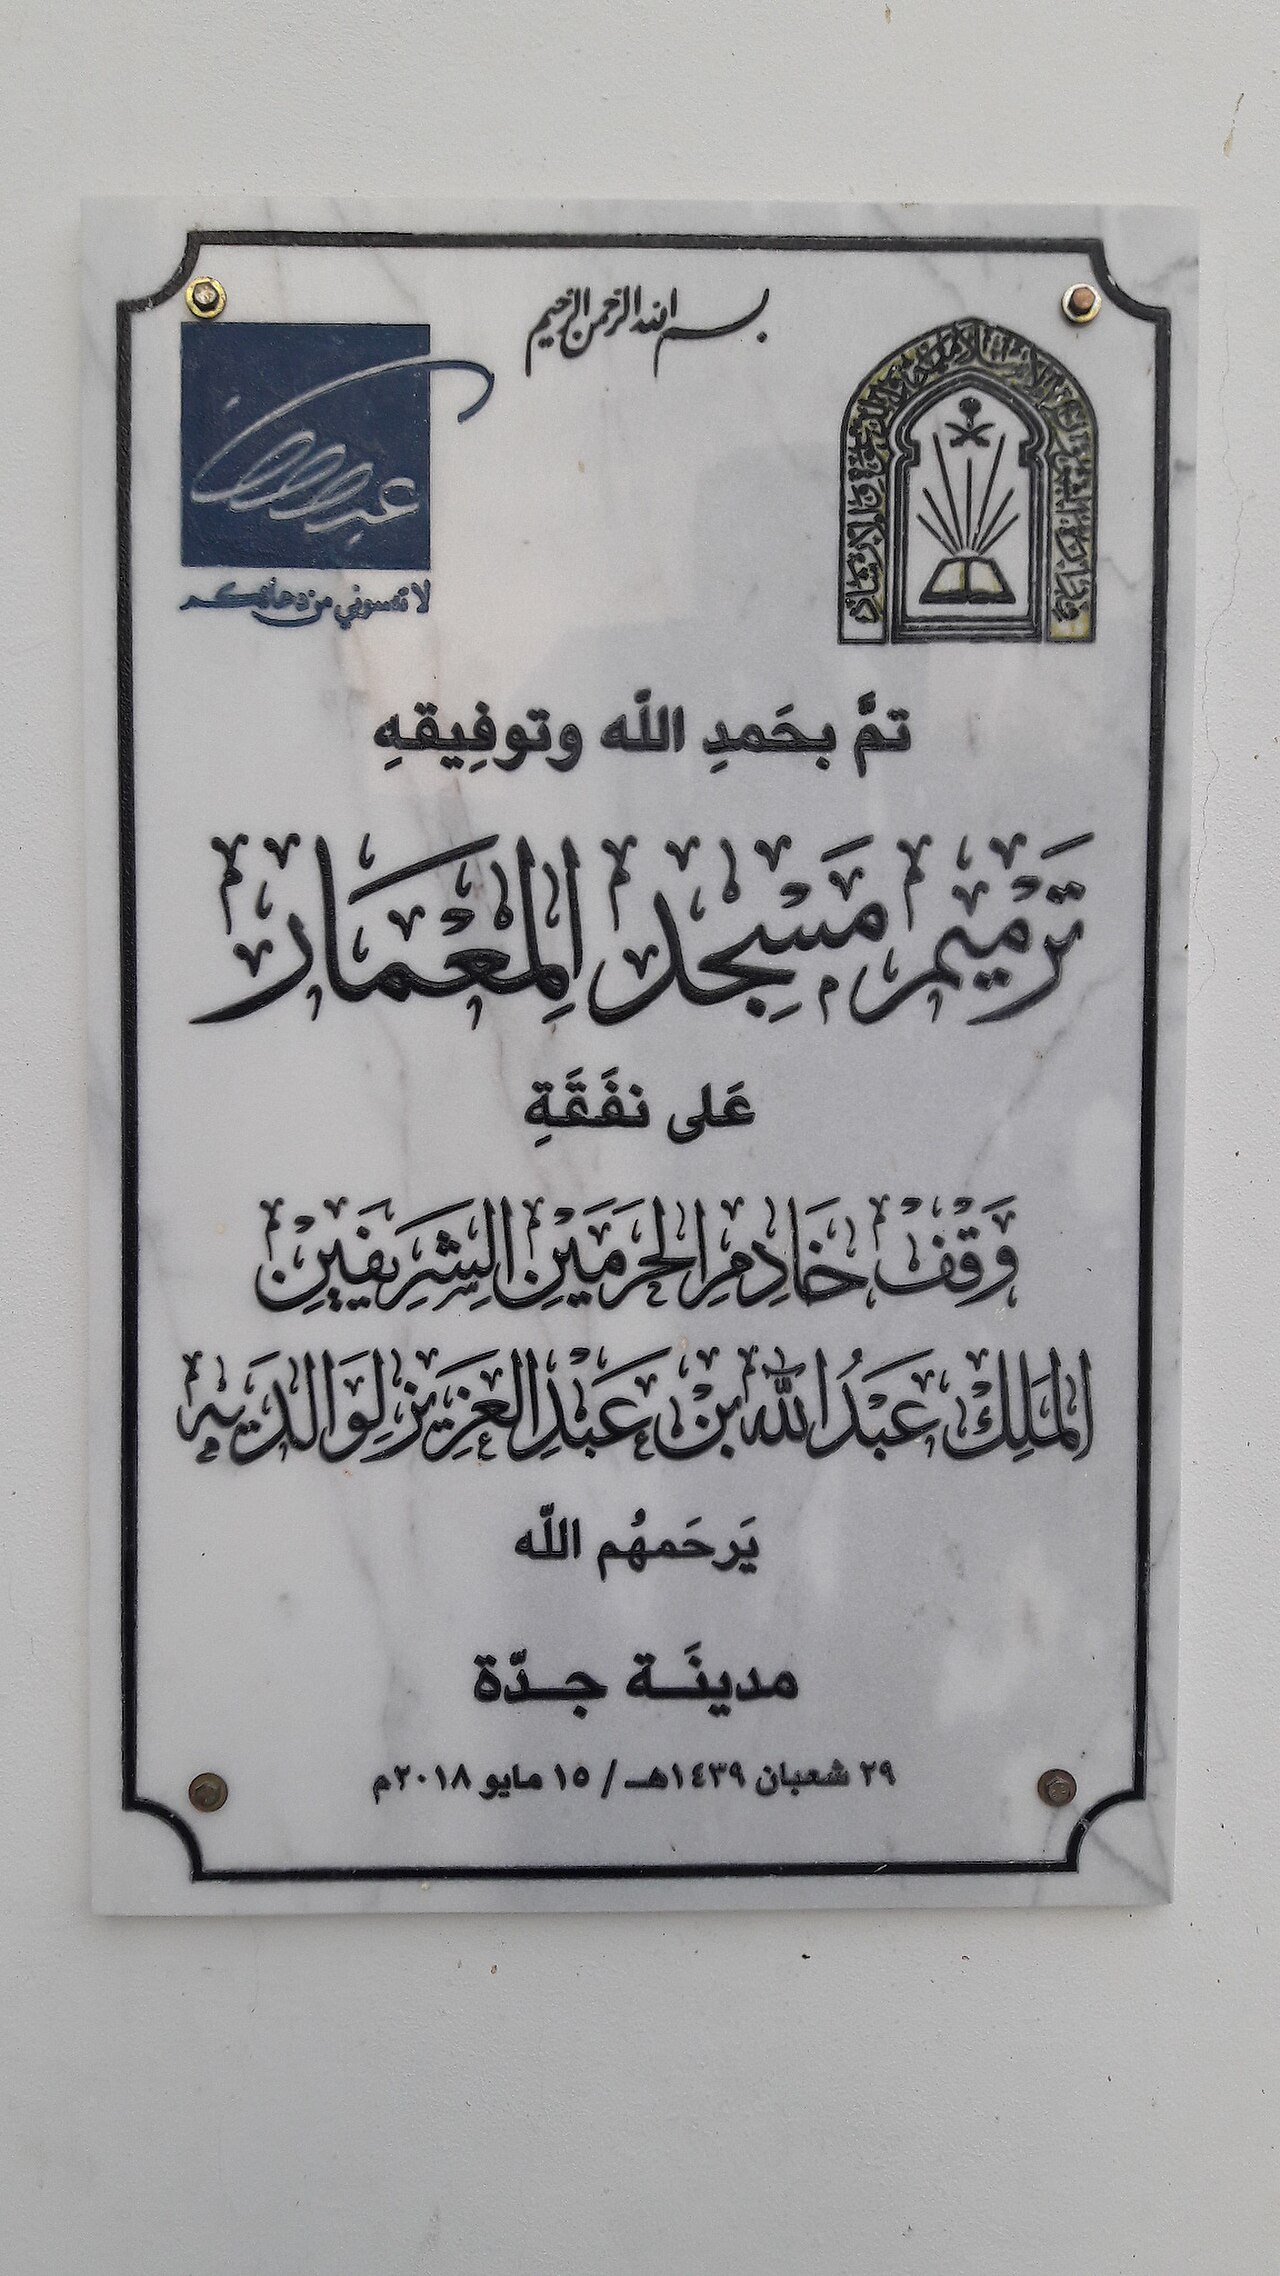 بسم الله الرحمن الرحيم
عبدالله
لا تنسوني من دعائكم
تمَّ بحَمدِ اللّه وتوفِيقهِ
تَرْمِيم مَسْجِد المِعْمَار
عَلى نفَقَةِ
وَقْفْ خَادِمِ الحَرَمَيْنِ الشَّرِيفَيْنِ
المَلِكْ عَبْدُاللّٰه بنْ عَبْدِالعَزِيز لِوَالدَيْه
يَرحَمهُم اللّه
مدينَـة جـدّة
٢٩ شعبان ١٤٣٩هـ / ١٥ مايو ٢٠١٨م